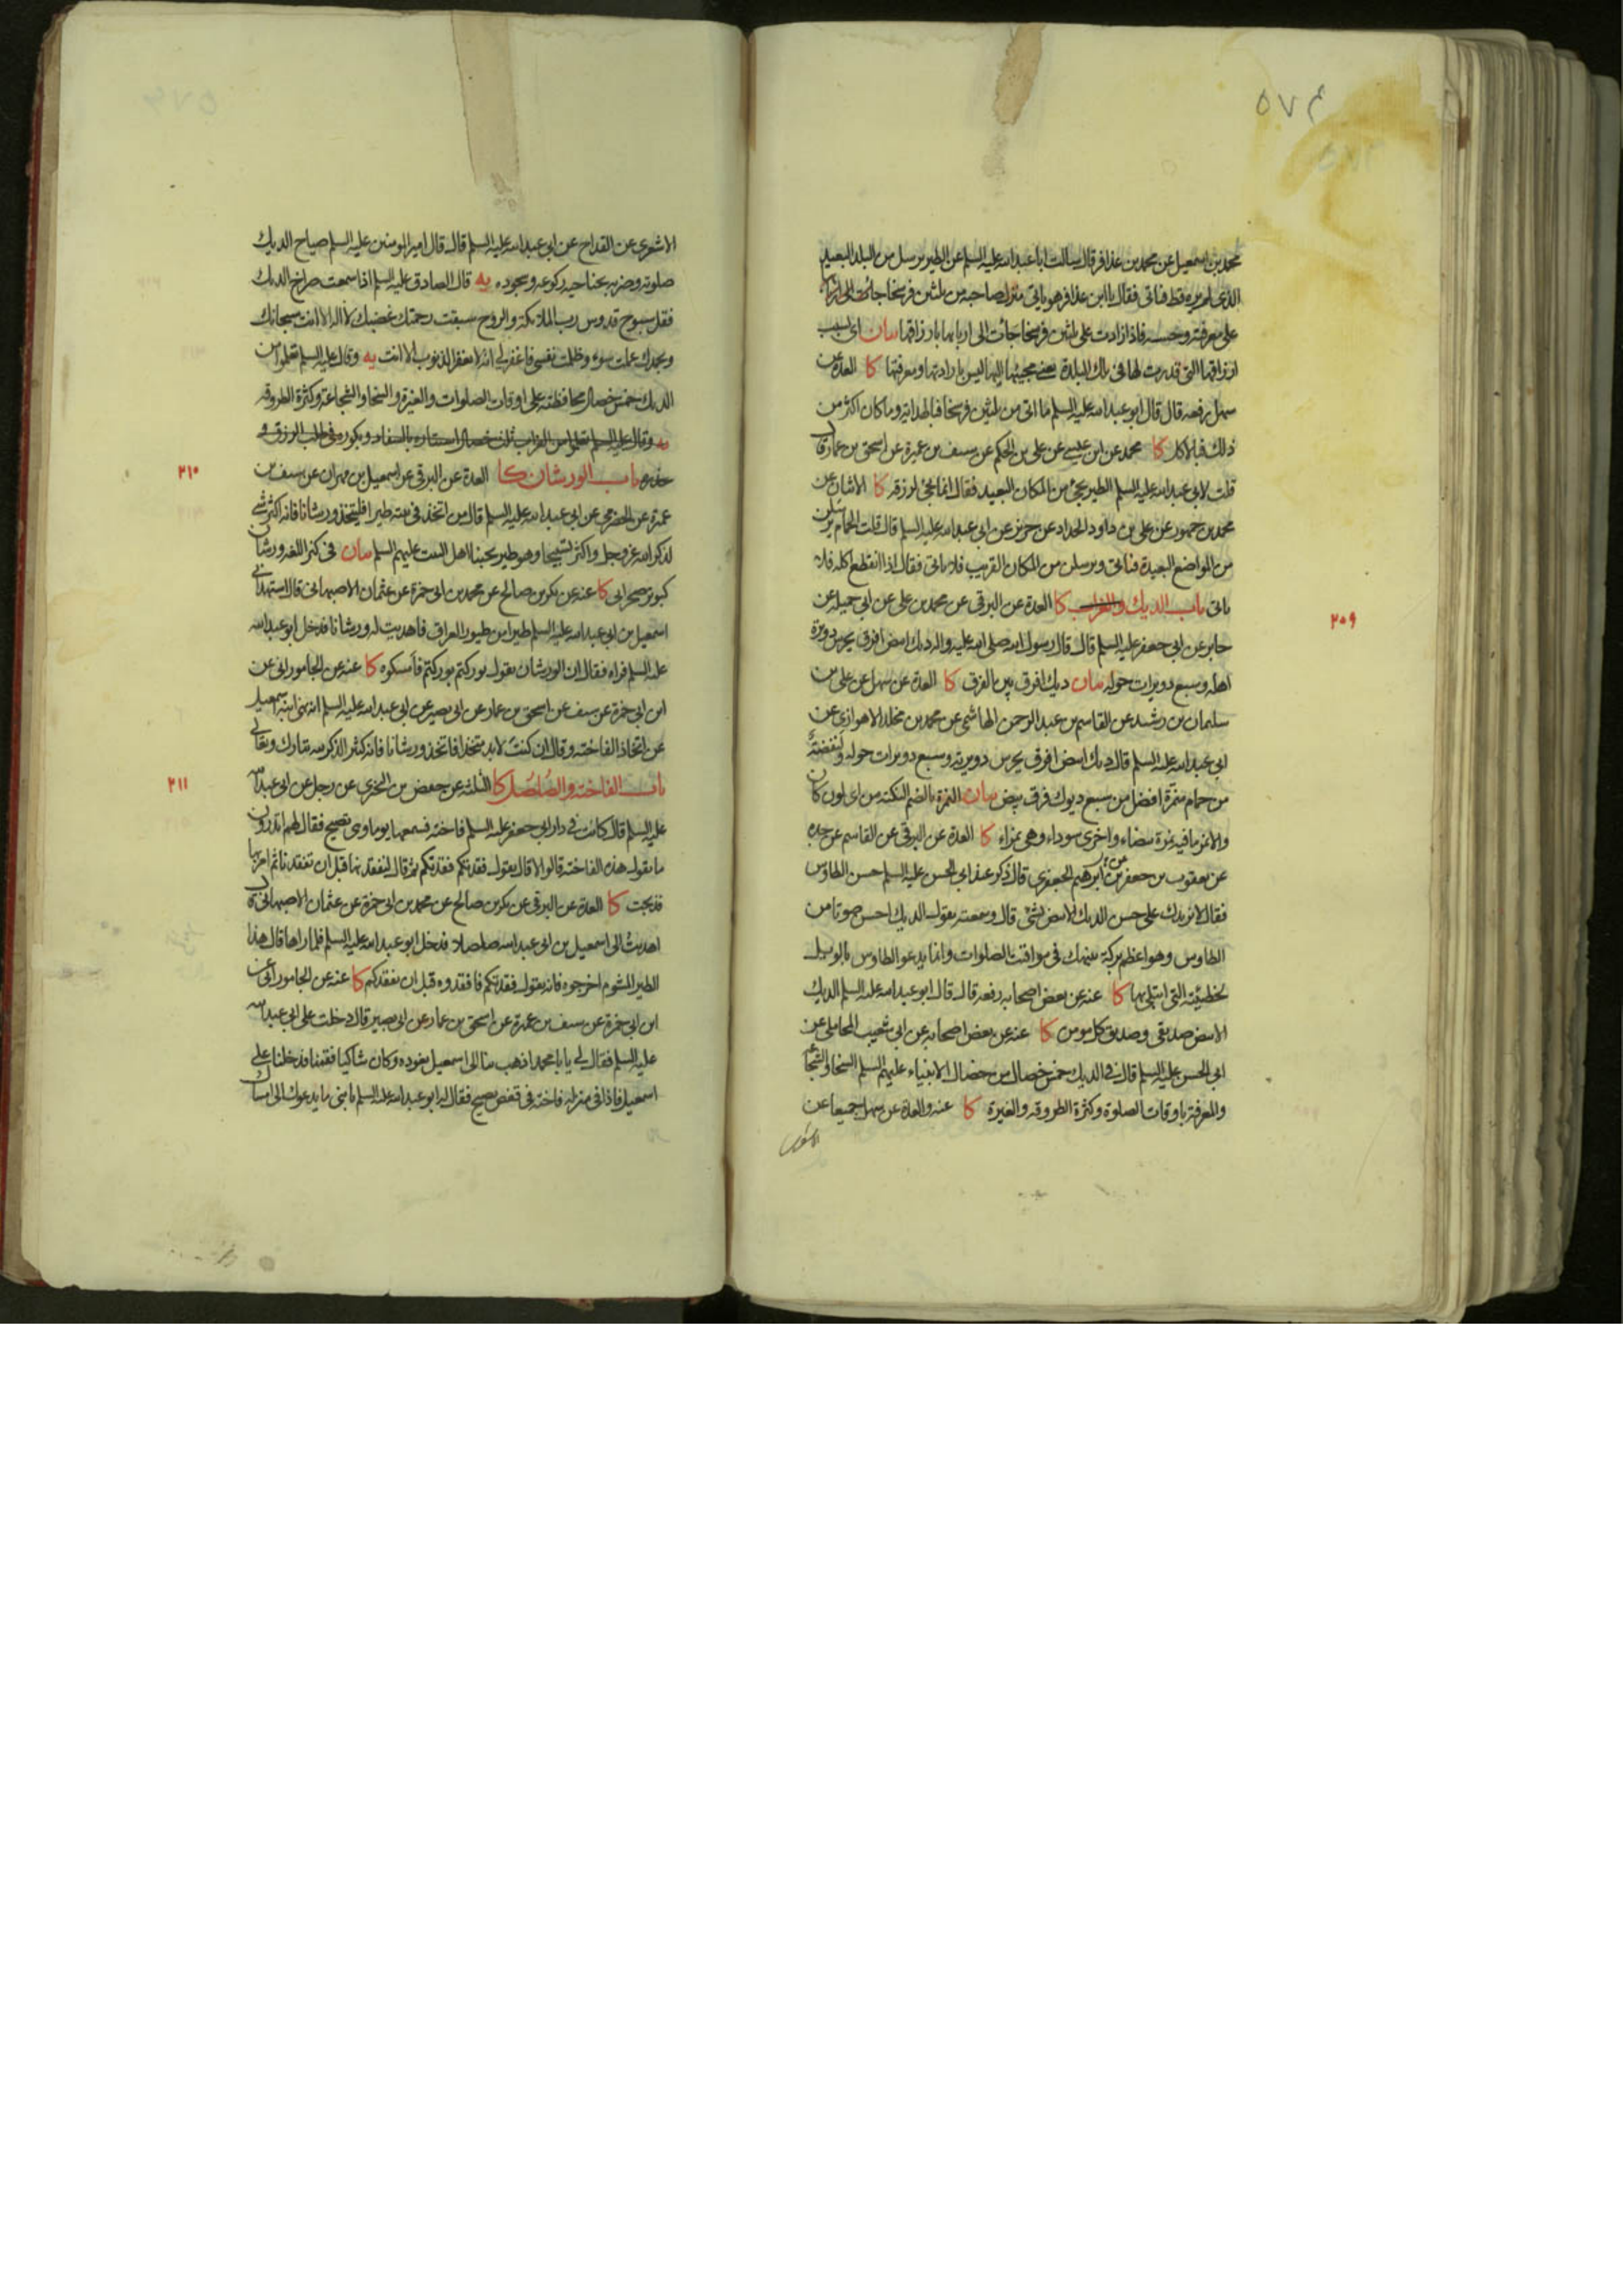 ٥٧٤
محمد بن اسمعيل عن محمد بن عذافر قال سالت ابا عبد الله عليه السلم عن الطير يرسل من البلد البعيد
الذى لم يره قط فياتى فقال يا ابن عذافر هو ياتى منزل صاحبه من ثلثين فرسخا جائت الى ارزاقها
على معرفته وحسه فاذا زادت على ثلثين فرسخا جائت الى اربابها بارزاقها بيان اى بسبب
ارزاقها التى قدرت لها فى تلك البلدة يعنى مجيئها اليها ليس بارادتها ومعرفتها كا العدة عن
سهل رفعه قال قال ابو عبد الله عليه السلم ما اتى من ثلثين فرسخا فبالهداية وما كان اكثر من
ذلك فبالاكل كا محمد عن ابن عيسى عن على بن الحكم عن سيف بن عميرة عن اسحق بن عمار قال
قلت لابى عبد الله عليه السلم الطير يجئ من المكان البعيد فقال انما يجئ لرزقه كا الاثنان عن
محمد بن جمهور عن على بن داود الحداد عن حريز عن ابى عبد الله عليه السلم قال قلت الحمام يرسلن
من المواضع البعيدة فياتى ويرسلن من المكان القريب فلا ياتى فقال اذا انقطع اكله فلا
ياتى باب الديك والغراب كا العدة عن البرقى عن محمد بن على عن ابى جميله عن
٢٠٩
جابر عن ابى جعفر عليه السلم قال قال رسول الله صلى الله عليه واله ديك ابيض افرق يحرس دويرة
اهله وسبع دويرات حوله بيان ديك افرق بين الفرق كا العدة عن سهل عن على بن
سليمان بن رشيد عن القاسم بن عبد الرحمن الهاشمى عن محمد بن مخلد الاهوازى عن
ابى عبد الله عليه السلم قال ديك ابيض افرق يحرس دويرته وسبع دويرات حوله ولنفضة
من حمام منمرة افضل من سبع ديوك فرق بيض بيان النمرة بالضم النكته من اى لون كان
والانمر ما فيه نمرة بيضاء واخرى سوداء وهى نمراء كا العدة عن البرقى عن القاسم عن جده
عن يعقوب بن جعفر بن ابرهيم الجعفرى قال ذكر عند ابى الحسن عليه السلم حسن الطاوس
فقال لا يزيدك على حسن الديك الابيض بشئ قال وسمعته يقول الديك احسن صوتا من
الطاوس وهو اعظم بركة ينبهك فى مواقيت الصلوات وانما يدعو الطاوس بالويل
لخطيئته التى ابتلى بها كا عنه عن بعض اصحابه رفعه قال قال ابو عبد الله عليه السلم الديك
الابيض صديقى وصديق كل مومن كا عنه عن بعض اصحابه عن ابى شعيب المحاملى عن
ابى الحسن عليه السلم قال فى الديك خمس خصال من خصال الانبياء عليهم السلم السخا والشجاعة
والمعرفة باوقات الصلوة وكثرة الطروقه والغيرة كا عنه والعدة عن سهل جميعا عن
الاشعرى
الاشعرى عن القداح عن ابى عبد الله عليه السلم قال قال امير المومنين عليه السلم صياح الديك
صلوته وضربه بجناحيه ركوعه وسجوده يه قال الصادق عليه السلم اذا سمعت صراخ الديك
فقل سبوح قدوس رب الملائكة والروح سبقت رحمتك غضبك لا اله الا انت سبحانك
وبحمدك عملت سوء وظلمت نفسى فاغفر لى انه لا يغفر الذنوب الا انت يه وقال عليه السلم تعلموا من
الديك خمس خصال محافظته على اوقات الصلوات والغيرة والسخا والشجاعة وكثرة الطروقه
يه وقال عليه السلم تعلموا من الغراب ثلث خصال استتاره بالسفاد وبكوره فى طلب الرزق و
حذره باب الورشان كا العدة عن البرقى عن اسمعيل بن مهران عن سيف بن
٢١٠
عميرة عن الحضرمى عن ابى عبد الله عليه السلم قال من اتخذ فى بيته طيرا فليتخذ ورشانا فانه اكثر شئ
لذكر الله عز وجل واكثر تسبيحا وهو طير يحبنا اهل البيت عليهم السلم بيان فى كنز اللغه ورشان
كبوتر صحرايى كا عنه عن بكر بن صالح عن محمد بن ابى حمزة عن عثمان الاصبهانى قال استهدانى
اسمعيل بن ابى عبد الله عليه السلم طيرا من طيور العراق فاهديت له ورشانا فدخل ابو عبد الله
عليه السلم فراه فقال ان الورشان يقول بوركتم بوركتم فامسكوه كا عنه عن الجامورانى عن
ابن ابى حمزة عن سيف عن اسحق بن عمار عن ابى بصير عن ابى عبد الله عليه السلم انه نهى ابنه اسمعيل
عن اتخاذ الفاخته وقال ان كنت لابد متخذا فاتخذ ورشانا فانه كثير الذكر لله تبارك وتعالى
باب الفاخته والصلصل كا الثلثه عن حفص بن البخترى عن رجل عن ابى عبد الله
٢١١
عليه السلم قال كانت فى دار ابى جعفر عليه السلم فاخته فسمعها يوما وهى تصيح فقال لهم اتدرون
ما تقول هذه الفاخته قالوا لا قال يقول فقدتكم فقدتكم ثم قال لنفقدنها قبل ان تفقدنا ثم امر بها
فذبحت كا العدة عن البرقى عن بكر بن صالح عن محمد بن ابى حمزة عن عثمان الاصبهانى قال
اهديت الى اسمعيل بن ابى عبد الله صلصلا فدخل ابو عبد الله عليه السلم فلما راها قال هذا
الطير المشوم اخرجوه فانه يقول فقدتكم فافقدوه قبل ان يفقدكم كا عنه عن الجامورانى عن
ابن ابى حمزة عن سيف بن عميرة عن اسحق بن عمار عن ابى بصير قال دخلت على ابى عبد الله
عليه السلم فقال لى يا با محمد اذهب بنا الى اسمعيل نعوده وكان شاكيا فقمنا فدخلنا على
اسمعيل فاذا فى منزله فاخته فى قفص تصيح فقال له ابو عبد الله عليه السلم يا بنى ما يدعوك الى امساك